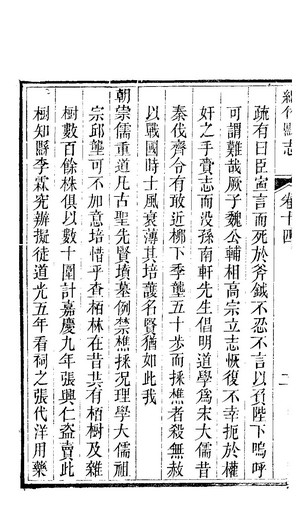 綿竹縣志
卷十四
二
疏有曰臣寧言而死於斧鉞不忍不言以負陛下嗚呼
可謂難哉厥子魏公輔相高宗立志恢復不幸扼於權
奸之手賫志而沒孫南軒先生倡明道學爲宋大儒昔
秦伐齊令有敢近柳下季壟五十步而採樵者殺無赦
以戰國時士風衰薄其培護名賢猶如此我
朝崇儒重道凡古聖先賢墳墓例禁樵採况理學大儒祖
宗邱壟可不加意培惜乎查栢林在昔共有栢樹及雜
樹數百餘株俱以數十圍計嘉慶九年張興仁盗賣此
樹知縣李霖究辦擬徒道光五年看祠之張代洋用藥